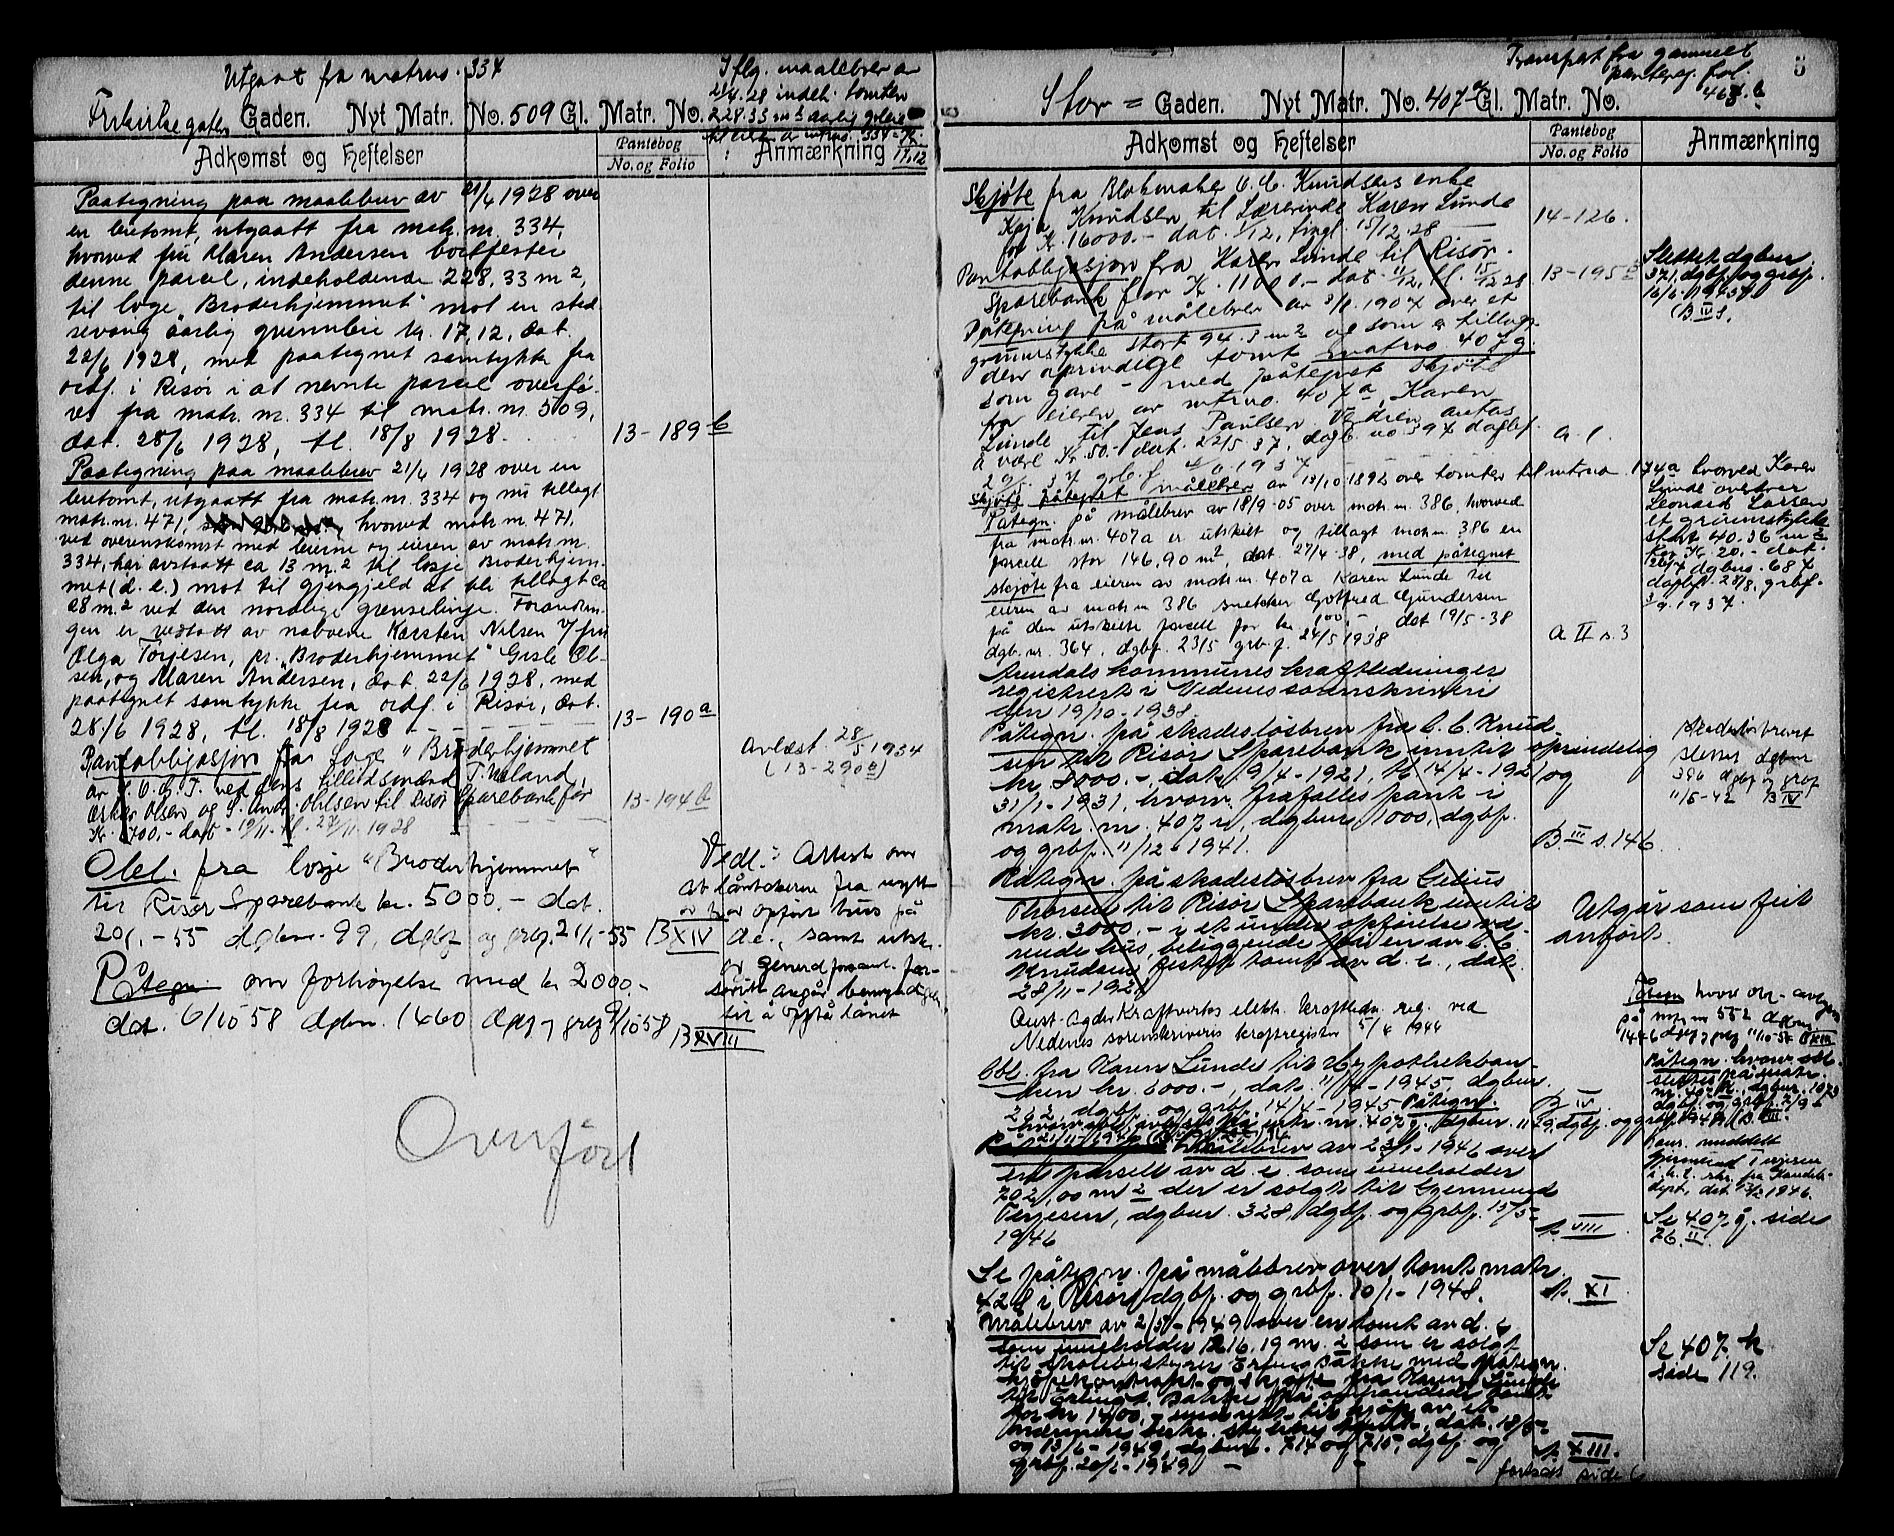 Utgaat fra matrno. 334
Iflg. maalebrev av
21/4.28 indeh. tomten
228.33 m2 aarlig
17,12
Frikirkegaten Gaden. Nyt Matr. No. 509 Gl. Matr. No.
Adkomst og Heftelser
Pantebog
No. og Folio
Anmærkning
Paategning paa maalebrev av 21/4 1928 over
en leietomt, utgaatt fra matr. nr. 334,
hvorved fru Maren Andersen bortfester
denne parcel, indeholdende 228,33 m2,
til loge "Broderhjemmet" mot en sted-
sevarig aarlig grunnleie kr. 17,12, dat.
22/6 1928, med paategnet samtykke fra
ordf. i Risør i at nevnte parcel overfø-
res fra matr. nr. 334 til matr. nr. 509,
dat. 28/6 1928, tl. 18/8 1928.
13-189 b
Paategning paa maalebrev 21/4 1928 over en
leietomt, utgaatt fra matr. nr. 334 og nu tillagt
matr. nr. 471, hvorved matr. nr. 471,
ved overenskomst med leierne og eieren av matr. nr.
334, har avstaatt ca 13 m2 til losje Broderhjem-
met (d. e.) mot til gjengjeld at bli tillagt ca
28 m2 ved den nordlige grenselinje. Forandrin-
gen er vedtatt av naboene Karsten Nilsen v/ fru
Olga Torjesen, pr. "Broderhjemmet" Gisle Ol-
sen, og Maren Andersen, dat. 22/6 1928, med
paategnet samtykke fra ordf. i Risør, dat.
28/6 1928, tl. 18/8 1928
13-190 a
Pantobligasjon fra Loge "Broderhjemmet
av I. O. G. T. ved dens tillidsmænd T. Ueland,
Oskar Olsen og S. Andr. Ohlsen til Risør Sparebank for
Kr. 700,- dat. 19/11 - tl. 24/11 - 1928
13-194 b
Avlest. 28/5 1934
(13-290 a)
Obl. fra losje "Broderhjemmet"
til Risør Sparebank kr. 5000.- dat.
20/1-55 dgbnr. 99, dgbf. og grbf. 21/1-55 B XIV
Vedl.: Attest om
at låntakerne fra nytt
av har opført hus på
d.e., samt utskr.
av generalforsaml. for-
såvitt angår bemyndigelse
til å oppta lånet
Påtegn. om forhøyelse med kr 2000.-
dat. 6/10 58 dgbnr. 1460 dgbf. og grbf. 9/10 58 B XVIII
Overført
Transport fra gammelt
panteregr. fol.
467. b
5
Stor = Gaden. Nyt Matr. No. 407 a Gl. Matr. No.
Adkomst og Heftelser
Pantebog
No. og Folio
Anmærkning
Skjøte fra Blokmaker C. C. Knudsens enke
Kaja Knudsen til Lærerinde Karen Lunde
for Kr. 16000.- dat. 1/12, tingl. 15/12.28
14-126.
Pantobligasjon fra Karen Lunde til Risør
Sparebank for Kr. 11000.- dat. 11/12, tl. 15/12 28
13-195
Slettet dgbnr.
371, dgbf. og grbf.
16/6-1937
(B III s.
Påtegning på målebrev av 8/11.1907 over et
grunnstykke stort 94.3 m2 og som er tillagt
den oprindelige tomt matrno. 407 g.
som gave - med påtegnet skjøte
fra eieren av mtrno. 407 a, Karen
Lunde til Jens Paulsen. Verdien antas
å være Kr. 50.- dat. 22/5 37, dagb. no 394 dagbf.
A. I.
Skjøte påtegnet målebrev av 13/10 1892 over tomter til mtrno 174a hvorved Karen
Lunde overdrar
Leonard Larsen
et grunnstykke
stort 40.36 m2
for Kr. 20.- dat.
dgbnr. 687
dagbf. 28/8, grbf.
3/9.1937.
Påtegn. på målebrev av 18/9-05 over matr. nr. 386, hvorved
fra matr. nr. 407a er utskilt og tillagt matr. nr. 386 en
parcelle stor 146,90 m2, dat. 27/4-38, med påtegnet
skjøte fra eieren av matr. nr. 407a Karen Lunde til
eieren av matr. nr 386 snekker Gotfred Gundersen
på den utskilte parcelle for kr. 100.-, dat 19/5-38
dgb. nr. 364, dgbf. 23/5 grb.f. 24/5 1938
A II s. 3
Arendals kommunes kraftledninger
registrert i Nedenes sorenskriveri
den 19/10-1938.
Påtegn. på skadesløsbrev fra C. C. Knud-
sen til Risør Sparebank inntil oprindelig
kr. 8000.-, dat. 9/4-1921, tl. 14/4-1921 og
31/1-1931, hvorv. frafalles pant i
matr. nr. 407 i, dgbnr. 1000, dgbf.
og grbf. 11/12-1941.
B III s. 146.
Skadesløsbrevet
slettet dgbnr
386 dgbf og grbf
11/5-42 B IV
Påtegn. på skadesløsbrev fra Gelius
Thorsen til Risør Sparebank inntil
kr. 3000.- i et under opførelse væ-
rende hus, beliggende på en av C. C.
Knudsen festet tomt av d. e., dat.
28/11-1921
Utgår som feil
anført.
Aust-Agder Kraftverks elektr. kraftledn. reg. ved
Nedenes sorenskriveris kraftregister 5/4 1944
Obl. fra Karen Lunde til Hypotekban-
ken kr. 6000.-, dat. 11/4-1945, dgbnr.
262, dgbf. og grbf. 14/4-1945 Påtegn.
B IV
Påtegn hvor obl. avlyses
på mtr. nr 552 dgbnr.
1446 dgbf og grbf 11/10-52
Påtegn. hvorv obl.
slettes på matr.
Målebrev av 23/1-1946 over
en parsell av d. e. som inneholder
202,00 m2 der er solgt til Gjermund
Terjesen, dgbnr. 328, dgbf. og grbf. 15/5-
1946
A. VIII
Se 407 j. side
76. II.
Se påtegn. på målebrev over tomt matr.
428 i Risør, dgbf. og grbf. 10/1-1948.
A. XI
Målebrev av 2/5-1949 over en tomt av d. e.
som inneholder 1216,19 m2 som er solgt
til skolebestyrer Erling Bakke med påtegn.
kjøpekontrakt og skjøte fra Karen Lunde
og 13/6-1949, dgbnr. 714 og 715, dgbf. og
grbf. 20/6-1949
A. XIII.
Se 407 k
side 119.
fortsatt side 6